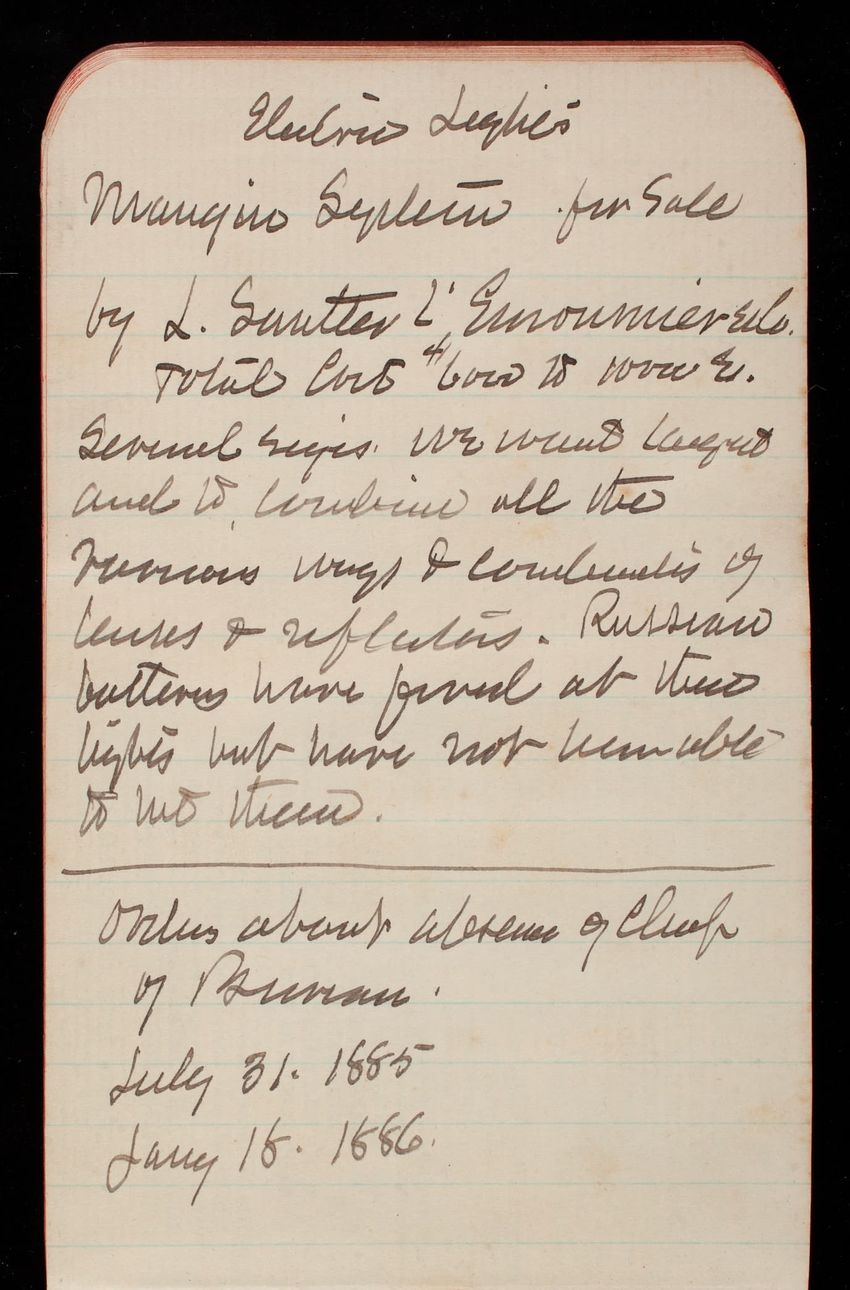 Electric Lights
Mangin System for Sale
by L. Sautter L' Emonnier & Co.
Total Cost $600 to 1000 &.
Several sizes. We want largest
and to combine all the
various ways & combinatis of
lenses & reflectors. Russian
batterys have fired at these
lights but have not been able
to hit them.
Orders about absence of Chief
of Bureau.
July 31. 1885
Jany 18. 1886.